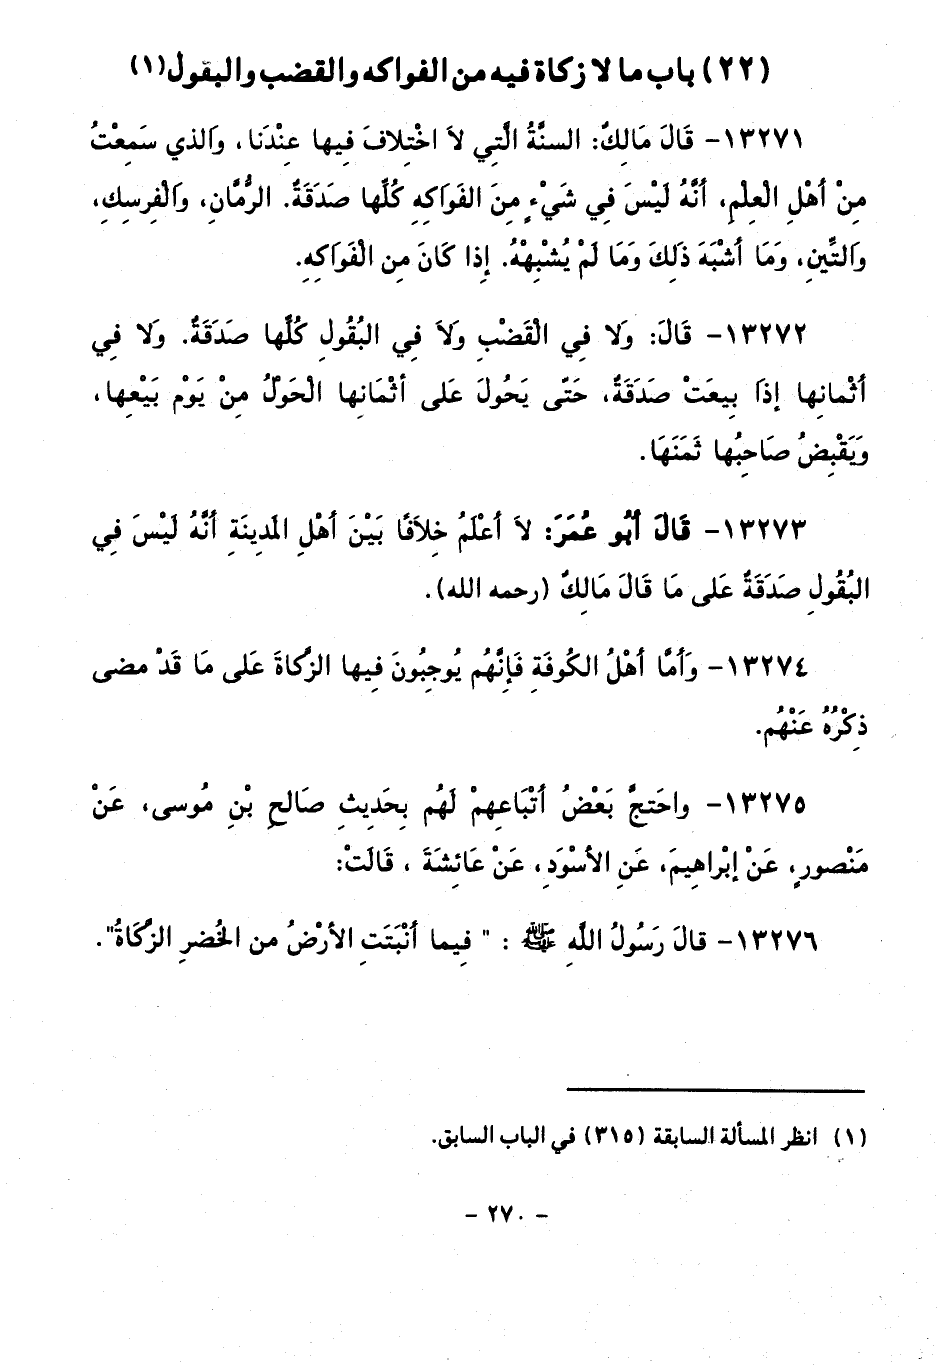 (٢٢) باب ما لا زكاة فيه من الفواكه والقضب والبقول(١)
١٣٢٧١- قَالَ مَالِكٌ: السنَّةُ الَّتِي لاَ اخْتِلافَ فِيها عِنْدَنا، والَذي سَمِعْتُ
مِنْ أهْلِ الْعِلْمِ، أنَّهُ لَيْسَ فِي شَيْءٍ مِنَ الفَواكِهِ كُلِّها صَدَقَةٌ. الرُّمَّانِ، والْفِرسِكِ،
والتِّينِ، وَمَا أشْبَهَ ذَلِكَ وَمَا لَمْ يُشْبِهْهُ. إذا كَانَ مِنِ الْفَوَاكِهِ.
١٣٢٧٢- قَالَ: وَلا فِي الْقَضْبِ وَلاَ فِي البُقُولِ كُلِّها صَدَقَةٌ. وَلا فِي
أثْمانِها إذَا بِيعَتْ صَدَقَةٌ، حَتّى يَحُولَ عَلى أثْمَانِها الْحَوْلُ مِنْ يَوْمِ بَيْعِها،
وَيَقْبِضُ صَاحِبُها ثَمَنَهَا.
١٣٢٧٣- قَالَ أبُو عُمَرَ: لاَ أعْلَمُ خِلاَفًا بَيْنَ أهْلِ المَدِينَةِ أنَّهُ لَيْسَ فِي
البُقُولِ صَدَقَةٌ عَلى مَا قَالَ مَالِكٌ (رحمه الله).
١٣٢٧٤- وَأمَّا أهْلُ الكُوفَةِ فَإنَّهُم يُوجِبُونَ فِيها الزَّكاةَ عَلى مَا قَدْ مضى
ذِكْرُهُ عَنْهُم.
١٣٢٧٥- واحَتجَّ بَعْضُ أتْبَاعِهِمْ لَهُم بِحَدِيثِ صَالحِ بْنِ مُوسى، عَنْ
مَنْصورٍ، عَنْ إبْراهِيمَ، عَنِ الأسْوَدِ، عَنْ عَائِشَةَ ، قَالَتْ:
١٣٢٧٦- قالَ رَسُولُ اللَّهِ ﷺ : " فِيما أنْبَتَتِ الأرْضُ من الخُضرِ الزَّكاةُ".
(١) انظر المسألة السابقة (٣١٥) في الباب السابق.
- ٢٧٠ -